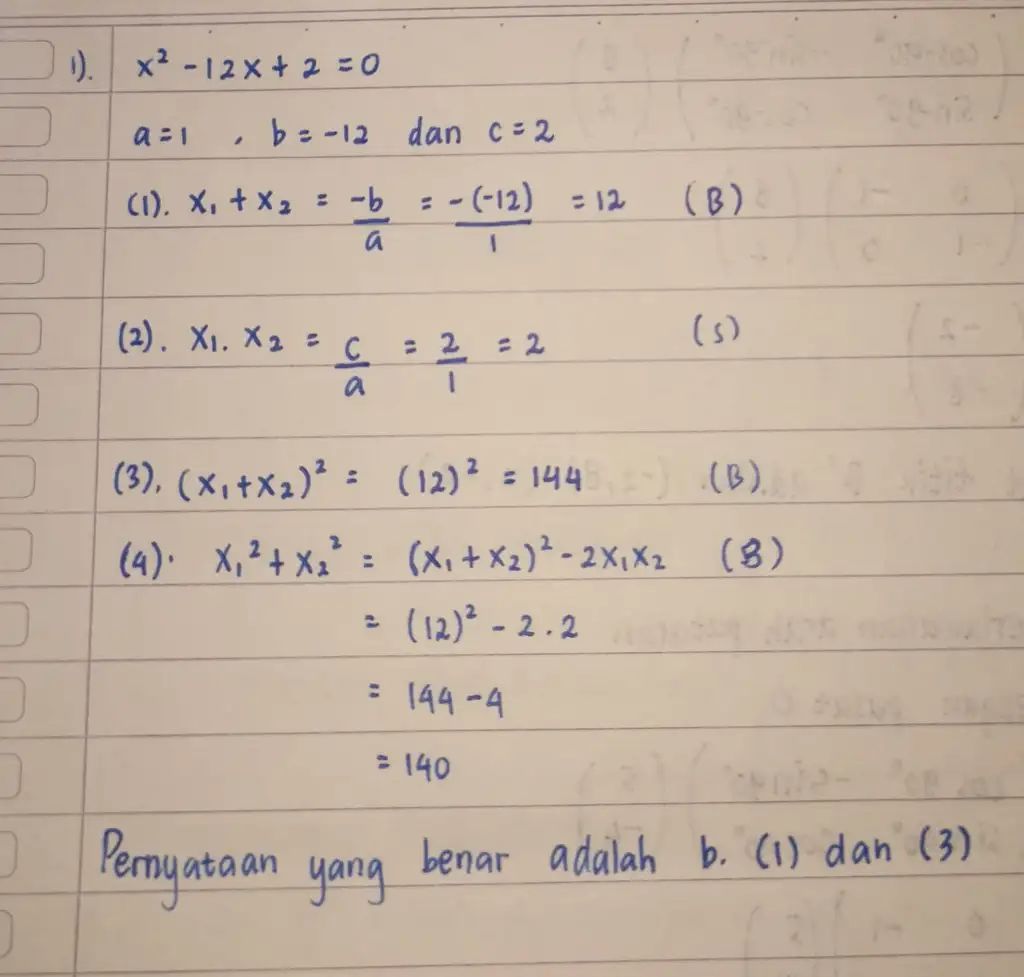 1). x² - 12x + 2 = 0
a = 1 , b = -12 dan c = 2
(1). x₁ + x₂ = -b/a = -(-12)/1 = 12 (B)
(2). x₁. x₂ = c/a = 2/1 = 2 (S)
(3). (x₁+x₂)² = (12)² = 144 (B)
(4). x₁² + x₂² = (x₁ + x₂)² - 2x₁x₂ (B)
= (12)² - 2 . 2
= 144 - 4
= 140
Pernyataan yang benar adalah b. (1) dan (3)